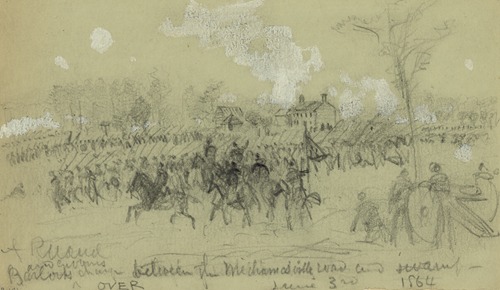 A R Waud
Barlows charge between the Mechanicsville road and swamp -
OVER June 3rd 1864